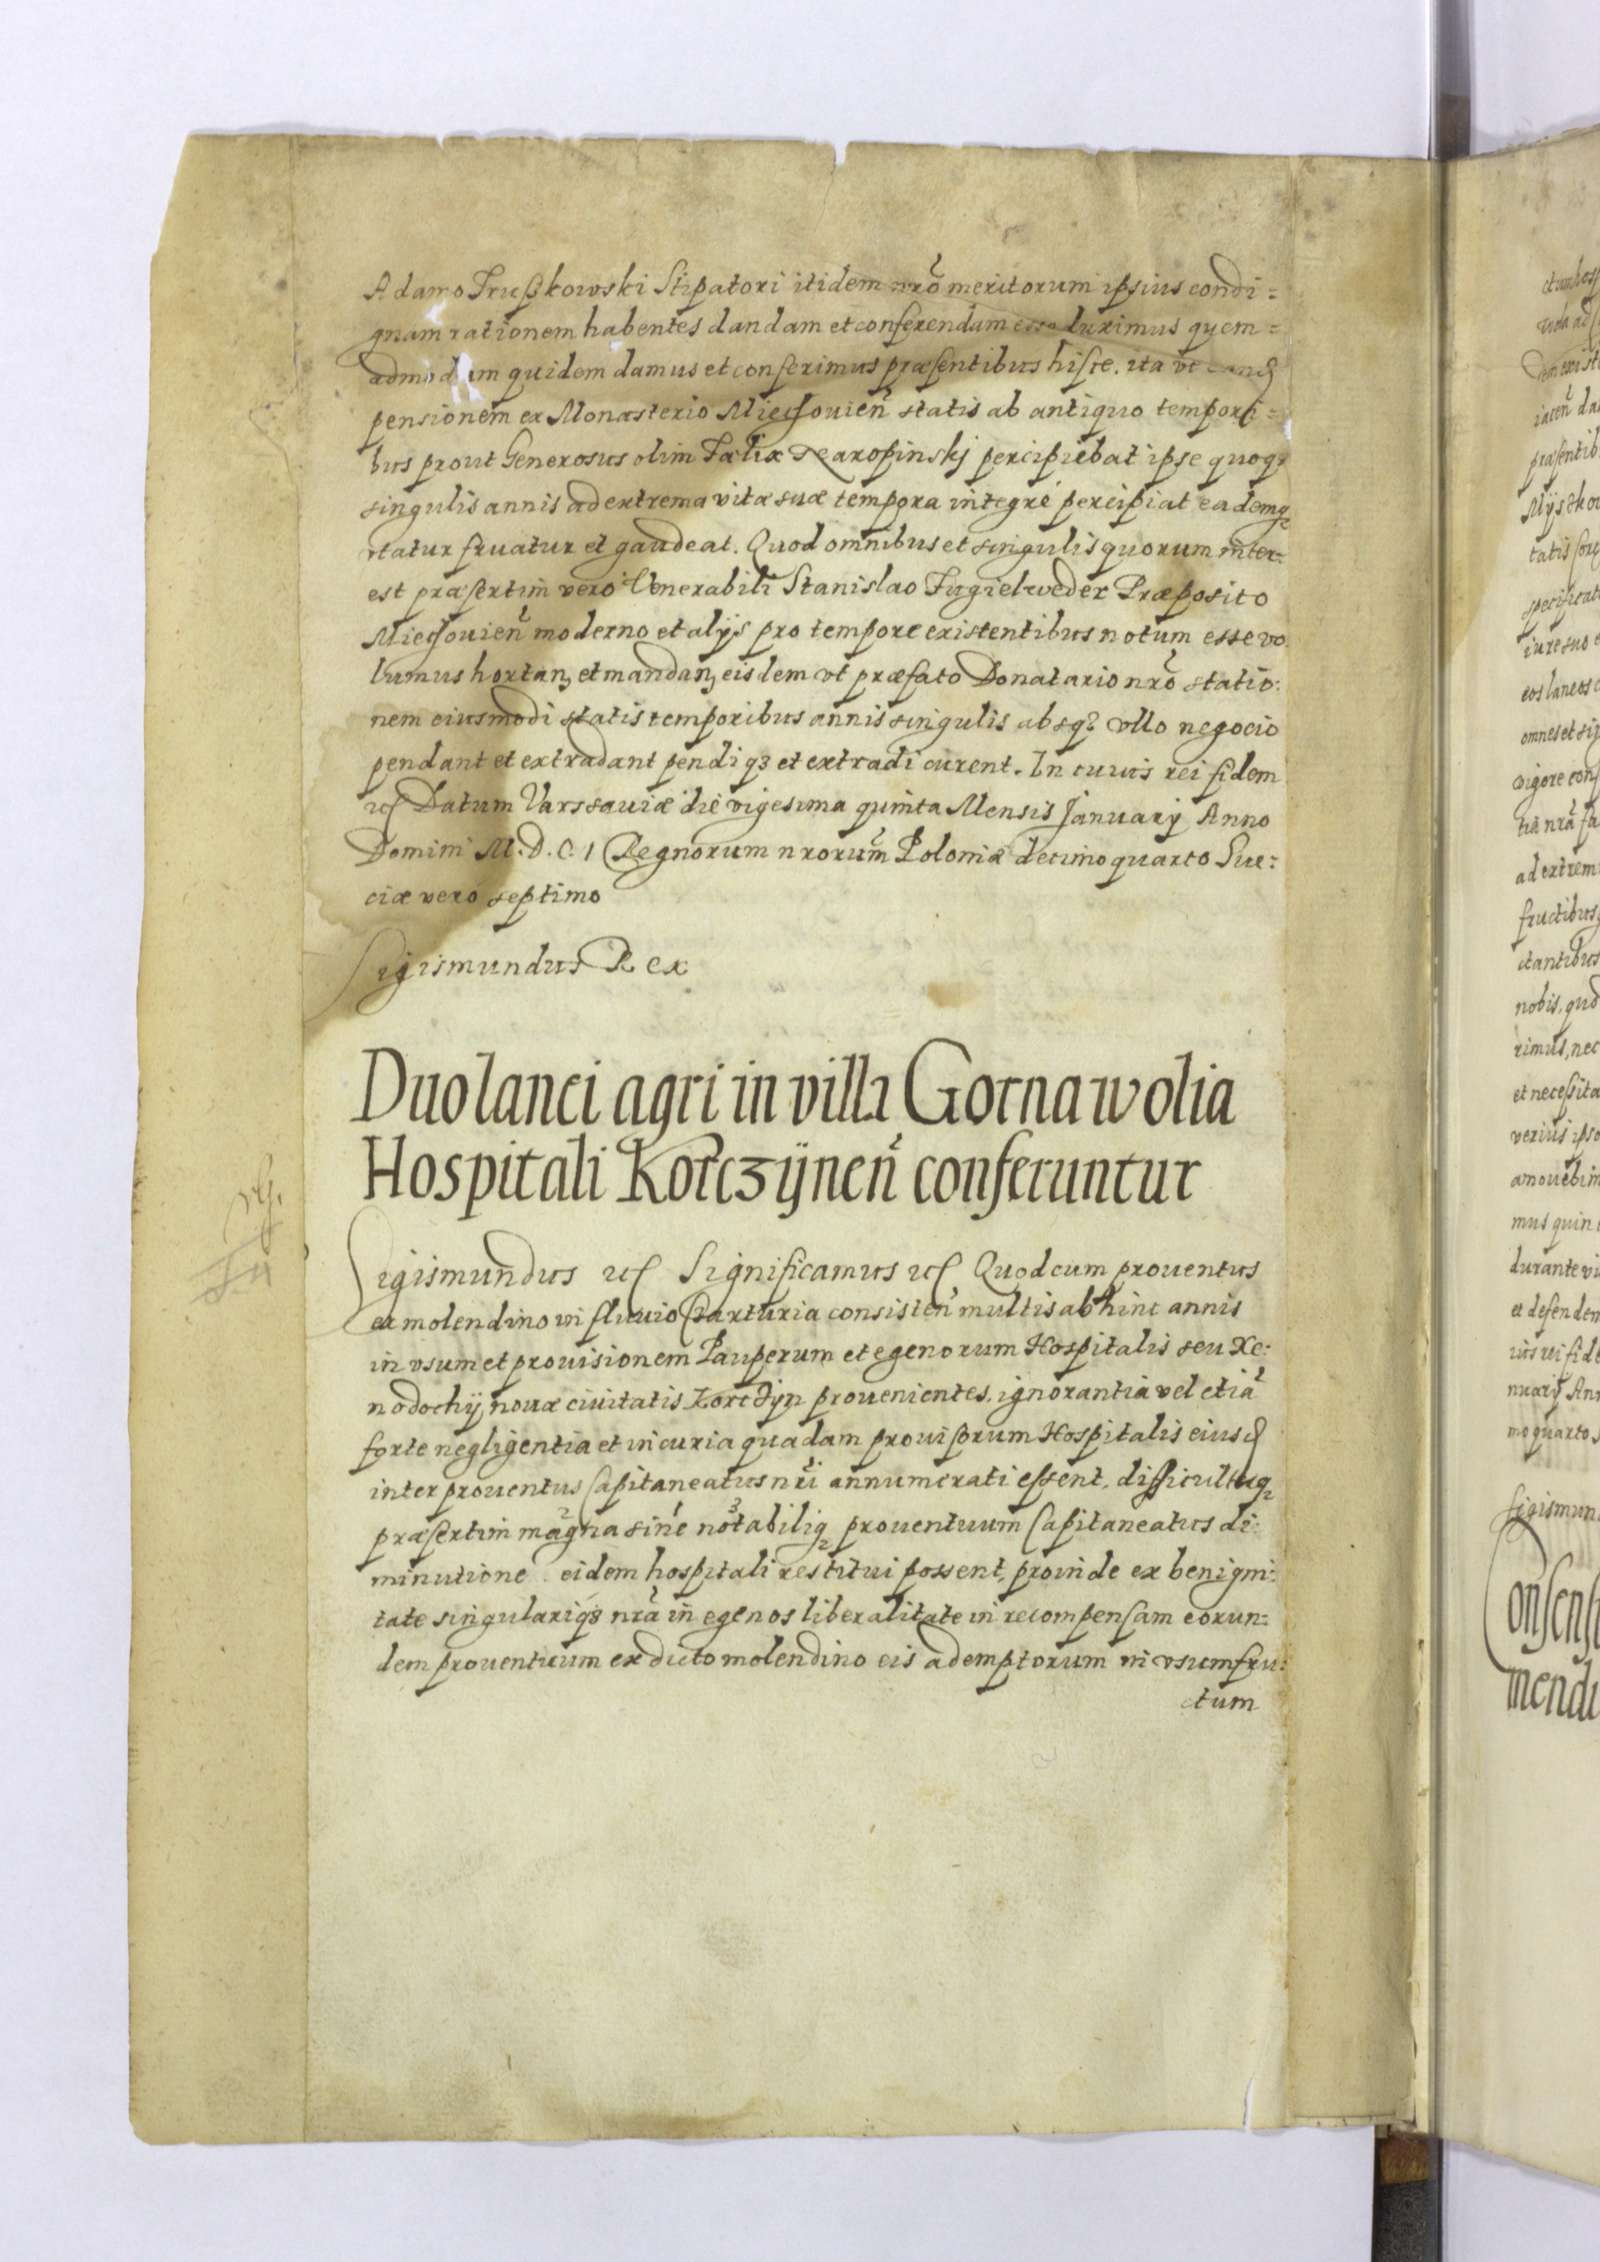 Adamo Trußkowski Stipatori itidem nro meritorum ipsius condi=
gnam rationem habentes dandam et conferendam esse duximus quem=
admodum quidem damus et conferimus præsentibus hisce. ita vt eand
pensionem ex Monasterio Miechouien statis ab antiquo tempori=
bus prout Generosus olim Fælix percipiebat ipse quoq3
singulis annis ad extrema vitæ suæ tempora integré percipiat eademq3
vtatur fruatur et gaudeat. Quod omnibus et singulis quorum inter=
est præsertim vero Venerabili Stanislao Præposito
Miechouien moderno et alijs pro tempore existentibus notum esse vo
lumus hortan3 et mandan3 eisdem vt præfato Donatario nro statio:
nem eiusmodi statis temporibus annis singulis absq3 vllo negocio
pendant et extradant pendiq3 et extradi curent. In cuius rei fidem
etc Datum Varssauiæ die vigesima quinta Mensis Januarij Anno
Domini M.D.C.I Regnorum nrorum Poloniæ decimo quarto Sue:
ciæ veró septimo
Sigismundus Rex
Duo lanei agri in villa Gorna wolia
Hospitali Korczÿnen conferuntur
Sigismundus etc Significamus etc Quod cum prouentus
ex molendino in fluuio consisten multis ab hinc annis
in vsum et prouisionem Pauperum et egenorum Hospitalis seu Xe:
nodochij nouæ ciuitatis Korczÿn prouenientes, ignorantia vel etiã
forte negligentia et incuria quadam prouisorum Hospitalis eiusd
inter prouentus Capitaneatus nri annumerati essent, difficulterq3
præsertim magna siné notabiliq3 prouentuum Capitaneatus di:
minutione eidem hospitali restitui possent, proinde ex benigni:
tate singulariq3 nra in egenos liberalitate in recompensam eorun:
dem prouentuum ex dicto molendino eis ademptorum in vsumfru:
ctum